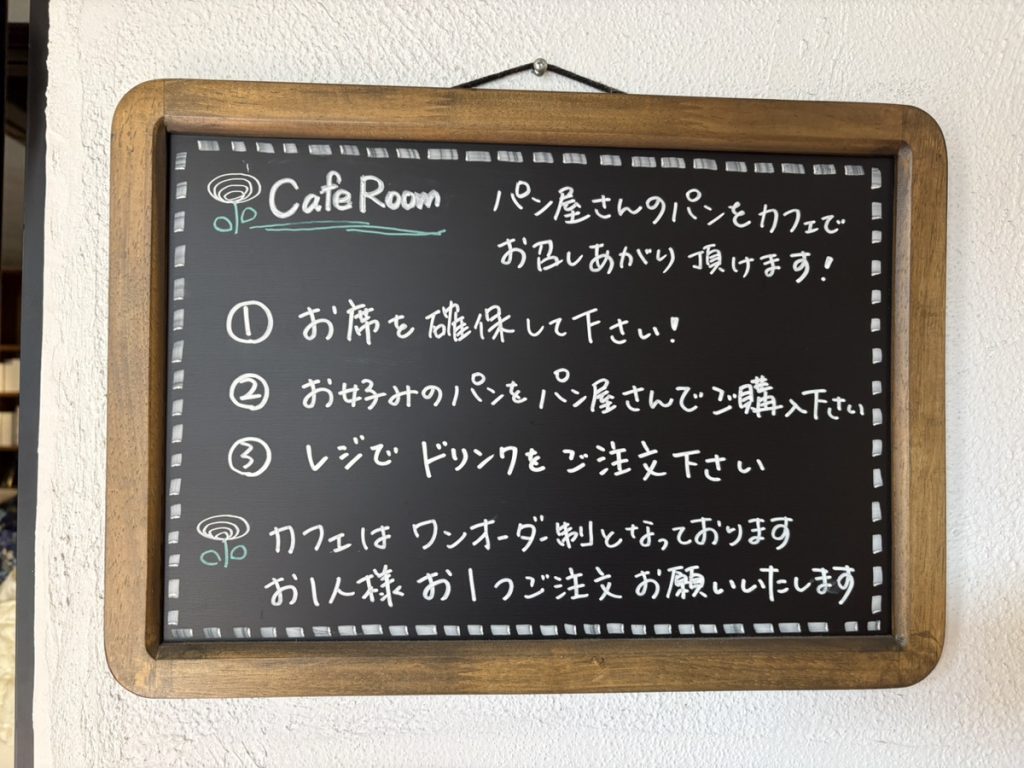 Cafe Room
パン屋さんのパンをカフェで
お召しあがり頂けます!
① お席を確保して下さい!
② お好みのパンをパン屋さんでご購入下さい
③ レジでドリンクをご注文下さい
カフェはワンオーダー制となっております
お1人様お1つご注文お願いいたします